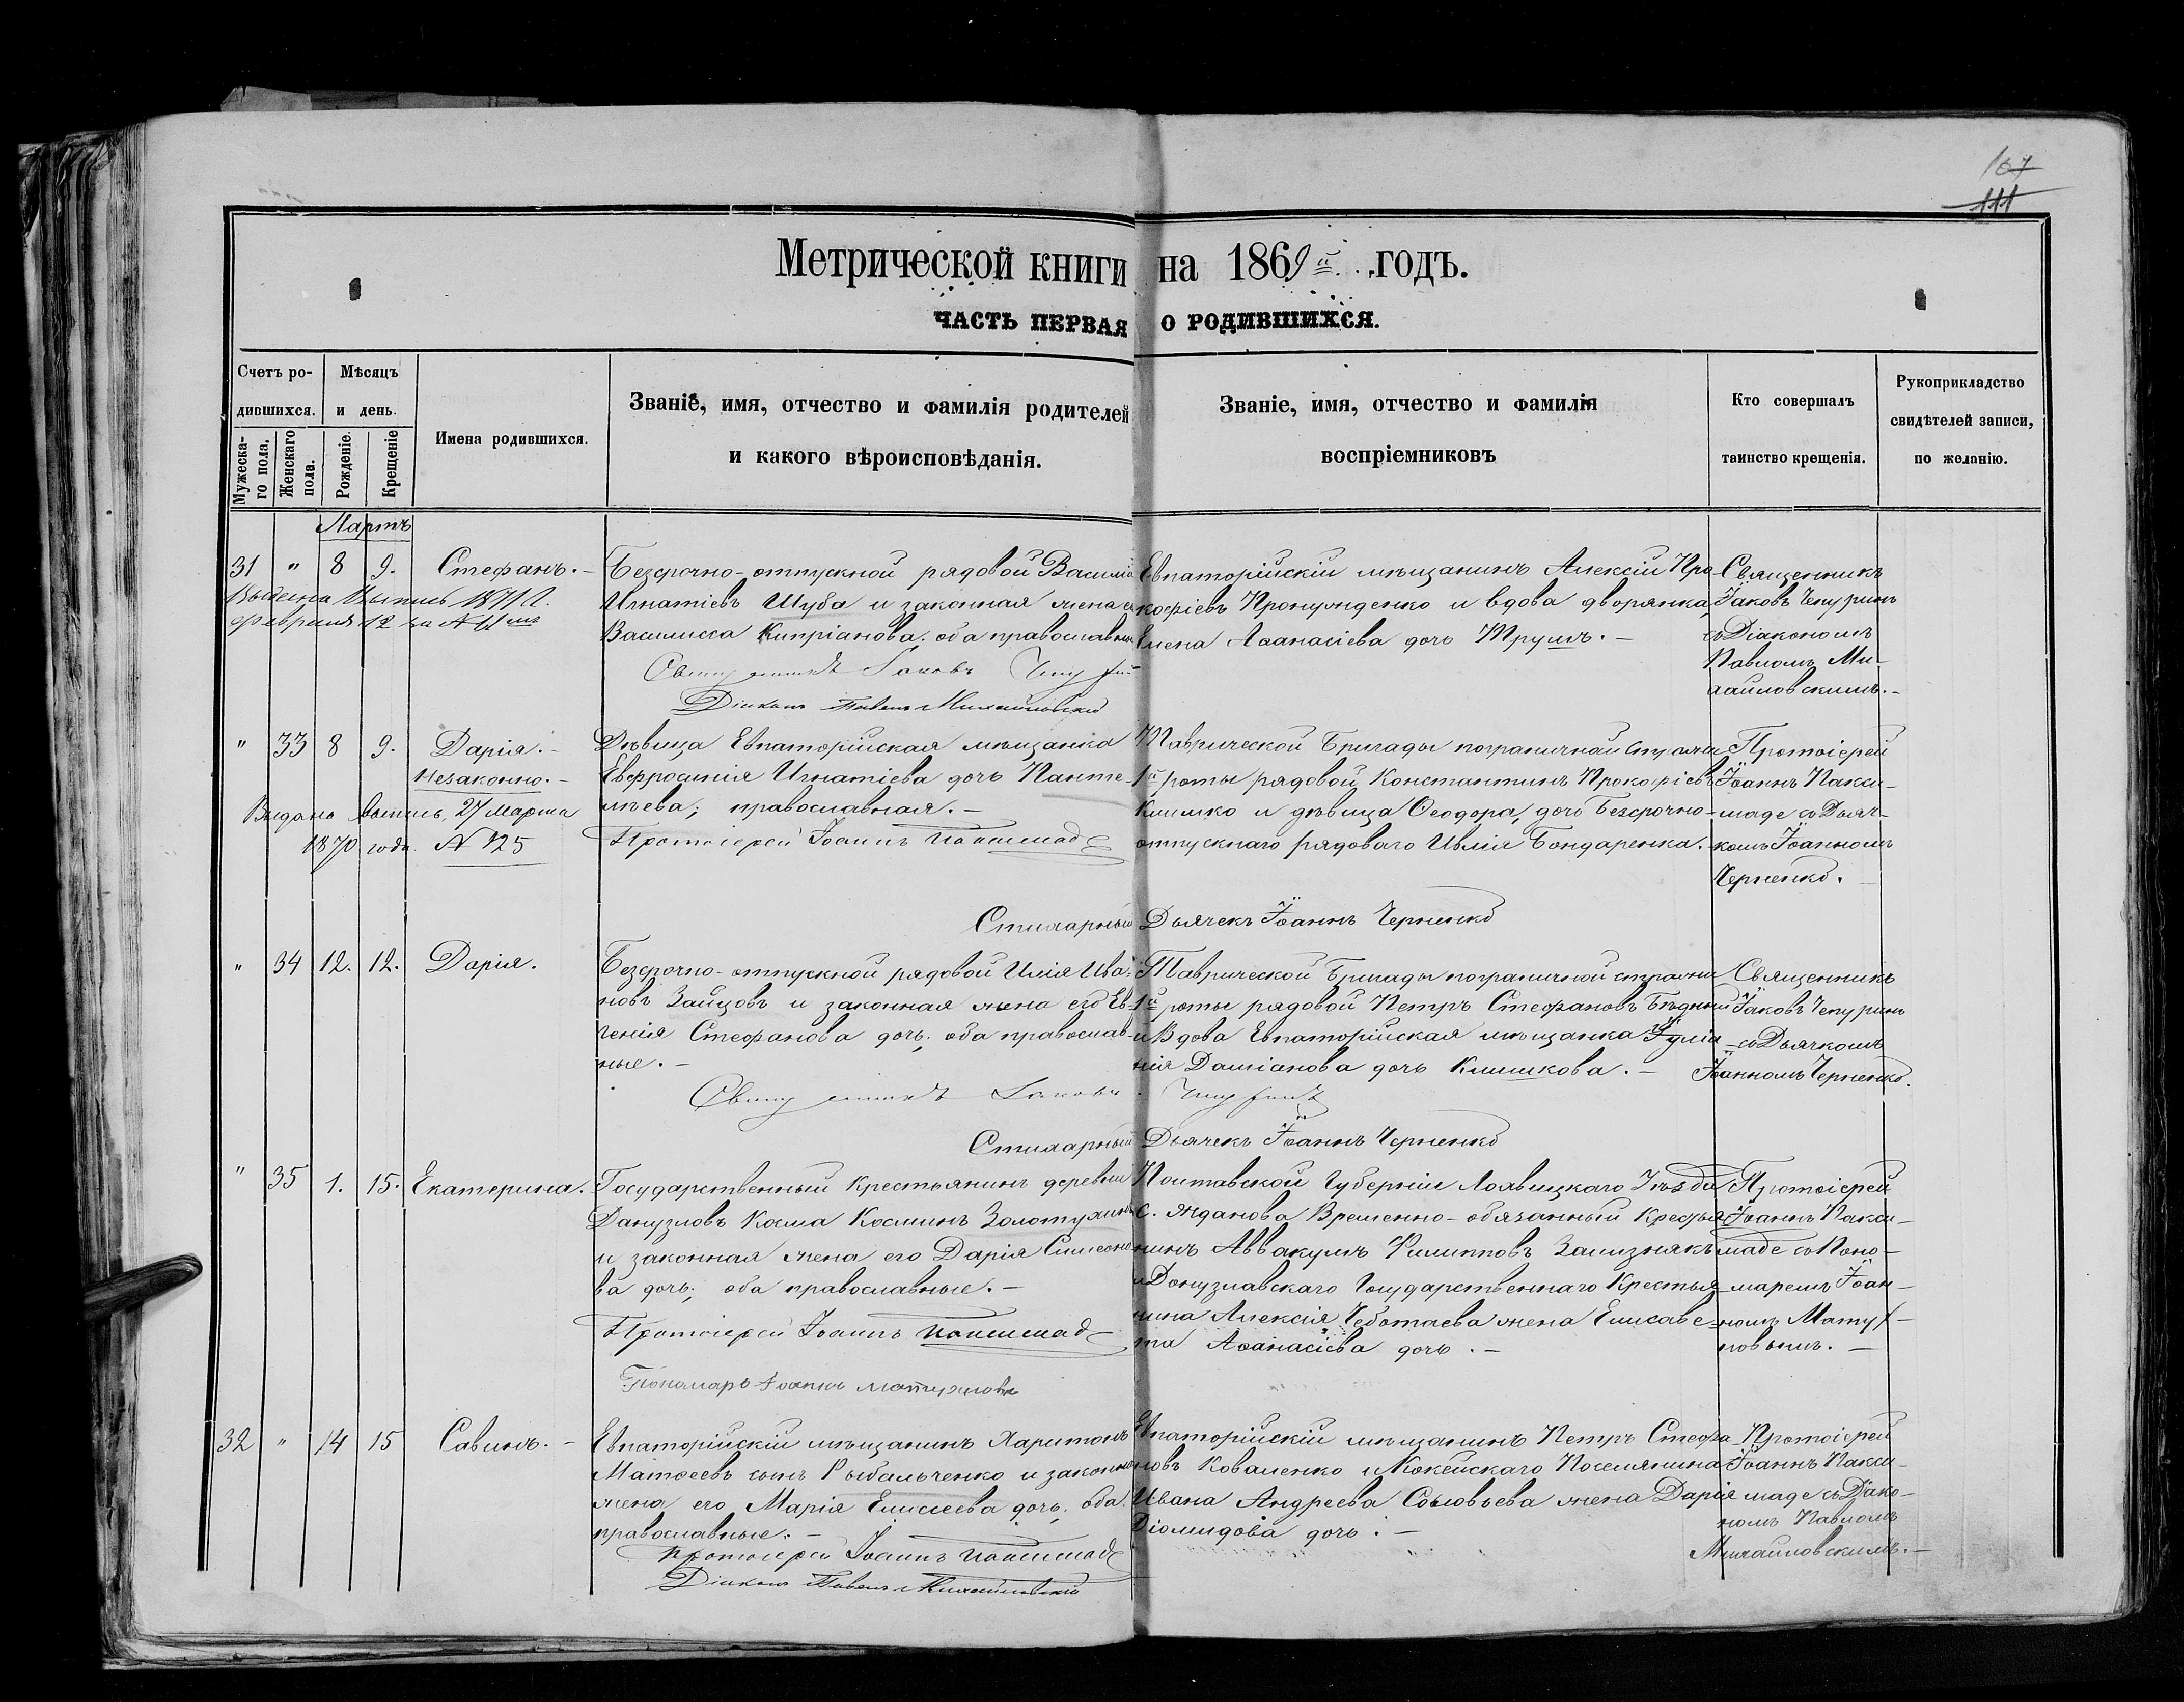 107
111
Метрической книги на 1869й годъ.
ЧАСТЬ ПЕРВАЯ О РОДИВШИХСЯ.
Счетъ родившихся.
Мужескаго пола.
Женскаго пола.
Мѣсяцъ и день.
Рожденіе.
Крещеніе
Имена родившихся.
Званіе, имя, отчество и фамилія родителей
и какого вѣроисповѣданія.
Званіе, имя, отчество и фамилія
воспріемниковъ
Кто совершалъ
таинство крещенія.
Рукоприкладство
свидѣтелей записи,
по желанію.
Мартъ
31 " 8 9. Стефанъ. -
Выдана выпись 1871 г.
Февраля 12 за №
Безсрочно-отпускной рядовой Василій
Игнатіевъ Шуба и законная жена его
Василиса Кипріанова; оба православные
Священникъ Іаковъ Чепуринъ
Діаконъ Павелъ Михайловскій
Евпаторійскій мѣщанинъ Алексій Про-
кофіевъ Пронужденко и вдова дворянка
Елена Аѳанасіева дочь Трушъ. -
Священникъ
Іаковъ Чепуринъ
съ Діакономъ
Павломъ Ми-
хайловскимъ. -
" 33 8 9. Дарія. -
Незаконно. -
Выдана выпись, 27 Марта
1870 года № 125
Дѣвица Евпаторійская мѣщанка
Евфросинія Игнатіева дочь Панте-
лѣева; православная. -
Протоіерей Іоаннъ Паксимаде
Таврической Бригады пограничной стражи
1й роты рядовой Константинъ Прокофіевъ
Климко и дѣвица Ѳеодора, дочь Безсрочно-
отпускнаго рядоваго Ивлія Бондаренка. -
Протоіерей
Іоаннъ Пакси-
маде съ Дьяч-
комъ Іоанномъ
Черненко.
Стихарный Дьячекъ Іоаннъ Черненко
" 34 12. 12. Дарія.
Безсрочно-отпускной рядовой Илія Ива-
новъ Зайцовъ и законная жена его Ев-
генія Стефанова дочь; оба православ-
ные. -
Священникъ Іаковъ Чепуринъ
Таврической Бригады пограничной стражи
1й роты рядовой Петръ Стефановъ Бѣдный
и Вдова Евпаторійская мѣщанка Іуліа-
нія Даміанова дочь Климкова. -
Священникъ
Іаковъ Чепуринъ
съ Дьячкомъ
Іоанномъ Черненко.
Стихарный Дьячекъ Іоаннъ Черненко
" 35 1. 15. Екатерина.
Государственный Крестьянинъ деревни
Данузловъ Косма Косминъ Золотухинъ
и законная жена его Дарія Симеоно-
ва дочь; оба православные. -
Протоіерей Іоаннъ Паксимаде
Пономарь Іоаннъ Матухновъ
Полтавской Губерніи Лохвицкаго Уѣзда
с. Жданова Временно-обязанный крестья-
нинъ Аввакумъ Филипповъ Зализнякъ
и Донузлавскаго Государственнаго Крестья-
нина Алексія Чеботаева жена Елисаве-
та Аѳанасіева дочь. -
Протоіерей
Іоаннъ Пакси-
маде съ Поно-
маремъ Іоан-
номъ Матух-
новымъ. -
32 " 14 15 Савинъ. -
Евпаторійскій мѣщанинъ Харитонъ
Матѳеевъ сынъ Рыбальченко и законная
жена его Марія Елисеева дочь; оба
православные. -
Протоіерей Іоаннъ Паксимаде
Діаконъ Павелъ Михайловскій
Евпаторійскій мѣщанинъ Петръ Стефа-
новъ Коваленко и Кокейскаго Поселянина
Ивана Андреева Соловьева жена Дарія
Діомидова дочь. -
Протоіерей
Іоаннъ Пакси-
маде съ Діако-
номъ Павломъ
Михайловскимъ. -